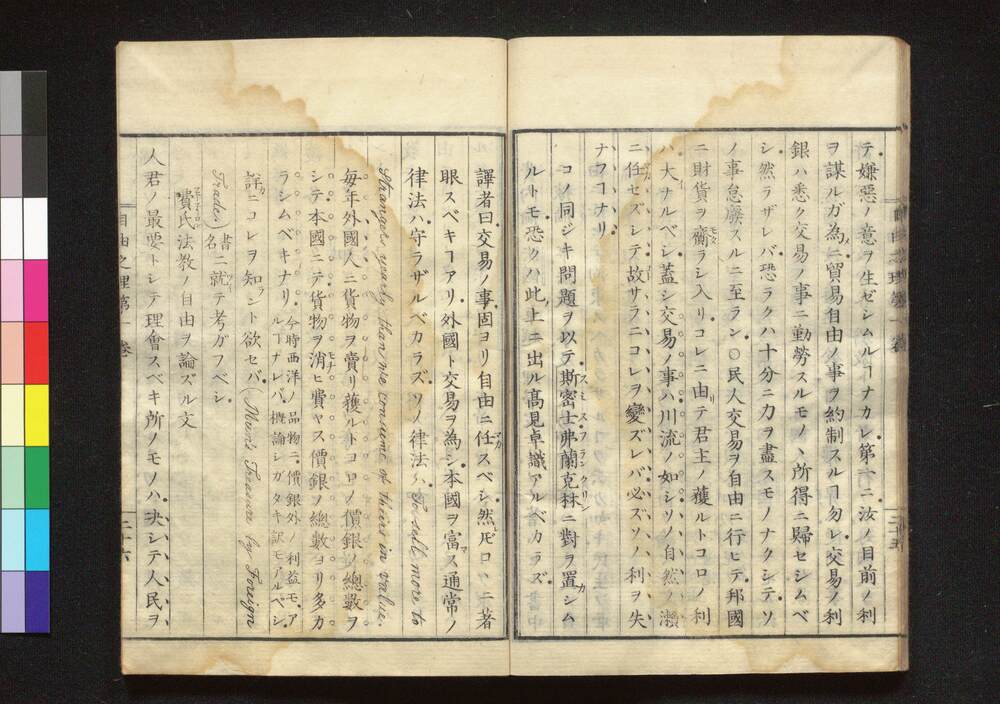 テ嫌惡ノ意ヲ生ゼシムルヿナカレ第一ニ汝ノ目前ノ利
ヲ謀ルガ為ニ貿易自由ノ事ヲ約制スルヿ勿レ交易ノ利
銀ハ悉ク交易ノ事ニ勤勞スルモノヽ所得ニ歸セシムベ
シ然ラザレバ恐ラクハ十分ニ力ヲ盡スモノナクシテソ
ノ事怠廢スルニ至ラン○民人交易ヲ自由ニ行ヒテ邦國
ニ財貨ヲ齎ラシ入リコレニ由テ君主ノ獲ルトコロノ利
ハ大ナルベシ蓋シ交易ノ事ハ川流ノ如シソノ自然ノ瀨
ニ任セズシテ故サラニコレヲ變ズレバ必ズソノ利ヲ失
ナフヿナリ
コノ同ジキ問題ヲ以テ斯密士弗蘭克林ニ對ヲ置シム
ルトモ恐クハ此上ニ出ル髙見卓識アルベカラズ
譯者曰交易ノ事固ヨリ自由ニ任スベシ然𪜈コヽニ著
眼スベキヿアリ外國ト交易ヲ為シ本國ヲ富マス通常ノ
律法ハ守ラザルベカラズソノ律法ハ To sell more to
Strangers yearly than we consume of theirs in value.
毎年外國人ニ貨物ヲ賣リ獲ルトコロノ價銀ノ總數ヲ
シテ本國ニテ貨物ヲ消ヒ費ヤス價銀ノ總數ヨリ多カ
ラシムベキナリ 今時西洋ノ品物ニ價銀外ノ利益モアルヿナレバ概論シガタキ訳モアルベシ
詳ニコレヲ知ント欲セバ (Mun's Treasure by Foreign
Trade) 書名ニ就テ考ガフベシ
費氏法教ノ自由ヲ論ズル文
人君ノ最要トシテ理會スベキ所ノモノハ决シテ人民ヲ
自由之理第一卷
二十六